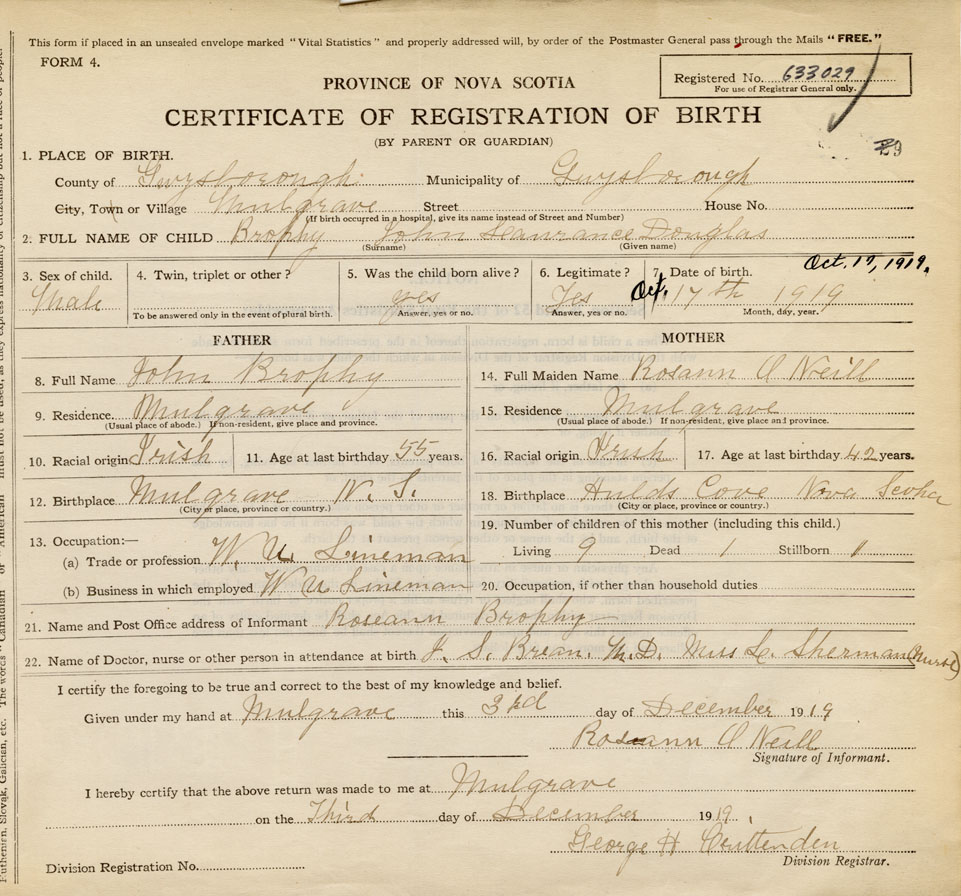 This form if placed in an unsealed envelope marked "Vital Statistics" and properly addressed will, by order of the Postmaster General pass through the Mails "FREE."
FORM 4.
Registered No. 633029
For use of Registrar General only.
PROVINCE OF NOVA SCOTIA
CERTIFICATE OF REGISTRATION OF BIRTH
(BY PARENT OR GUARDIAN)
1. PLACE OF BIRTH.
County of Guysborough Municipality of Guysborough
City, Town or Village Mulgrave Street House No.
(If birth occurred in a hospital, give its name instead of Street and Number)
2. FULL NAME OF CHILD Brophy John Laurance Douglas
(Surname) (Given name)
Oct. 17, 1919.
3. Sex of child. 4. Twin, triplet or other? 5. Was the child born alive? 6. Legitimate? 7. Date of birth.
Male yes Yes Oct. 17th 1919
To be answered only in the event of plural birth. Answer, yes or no. Answer, yes or no. Month, day, year.
FATHER MOTHER
8. Full Name John Brophy 14. Full Maiden Name Rosann O Neill
9. Residence. Mulgrave 15. Residence Mulgrave
(Usual place of abode.) If non-resident, give place and province. (Usual place of abode.) If non-resident, give place and province.
10. Racial origin Irish 11. Age at last birthday 55 years. 16. Racial origin Irish 17. Age at last birthday 42 years.
12. Birthplace Mulgrave N. S. 18. Birthplace Hulds Cove Nova Scotia
(City or place, province or country.) (City or place, province or country.)
19. Number of children of this mother (including this child.)
13. Occupation:—
Living 9 Dead 1 Stillborn
(a) Trade or profession W. U. Lineman
(b) Business in which employed W U Lineman 20. Occupation, if other than household duties
21. Name and Post Office address of Informant Roseann Brophy
22. Name of Doctor, nurse or other person in attendance at birth J. S. Brean. M.D. Miss L. Sherman (Nurse)
I certify the foregoing to be true and correct to the best of my knowledge and belief.
Given under my hand at Mulgrave this 3rd day of December 1919
Roseann O Neill
Signature of Informant.
I hereby certify that the above return was made to me at Mulgrave
on the Third day of December 1919.
George H Cruttenden
Division Registrar.
Division Registration No.